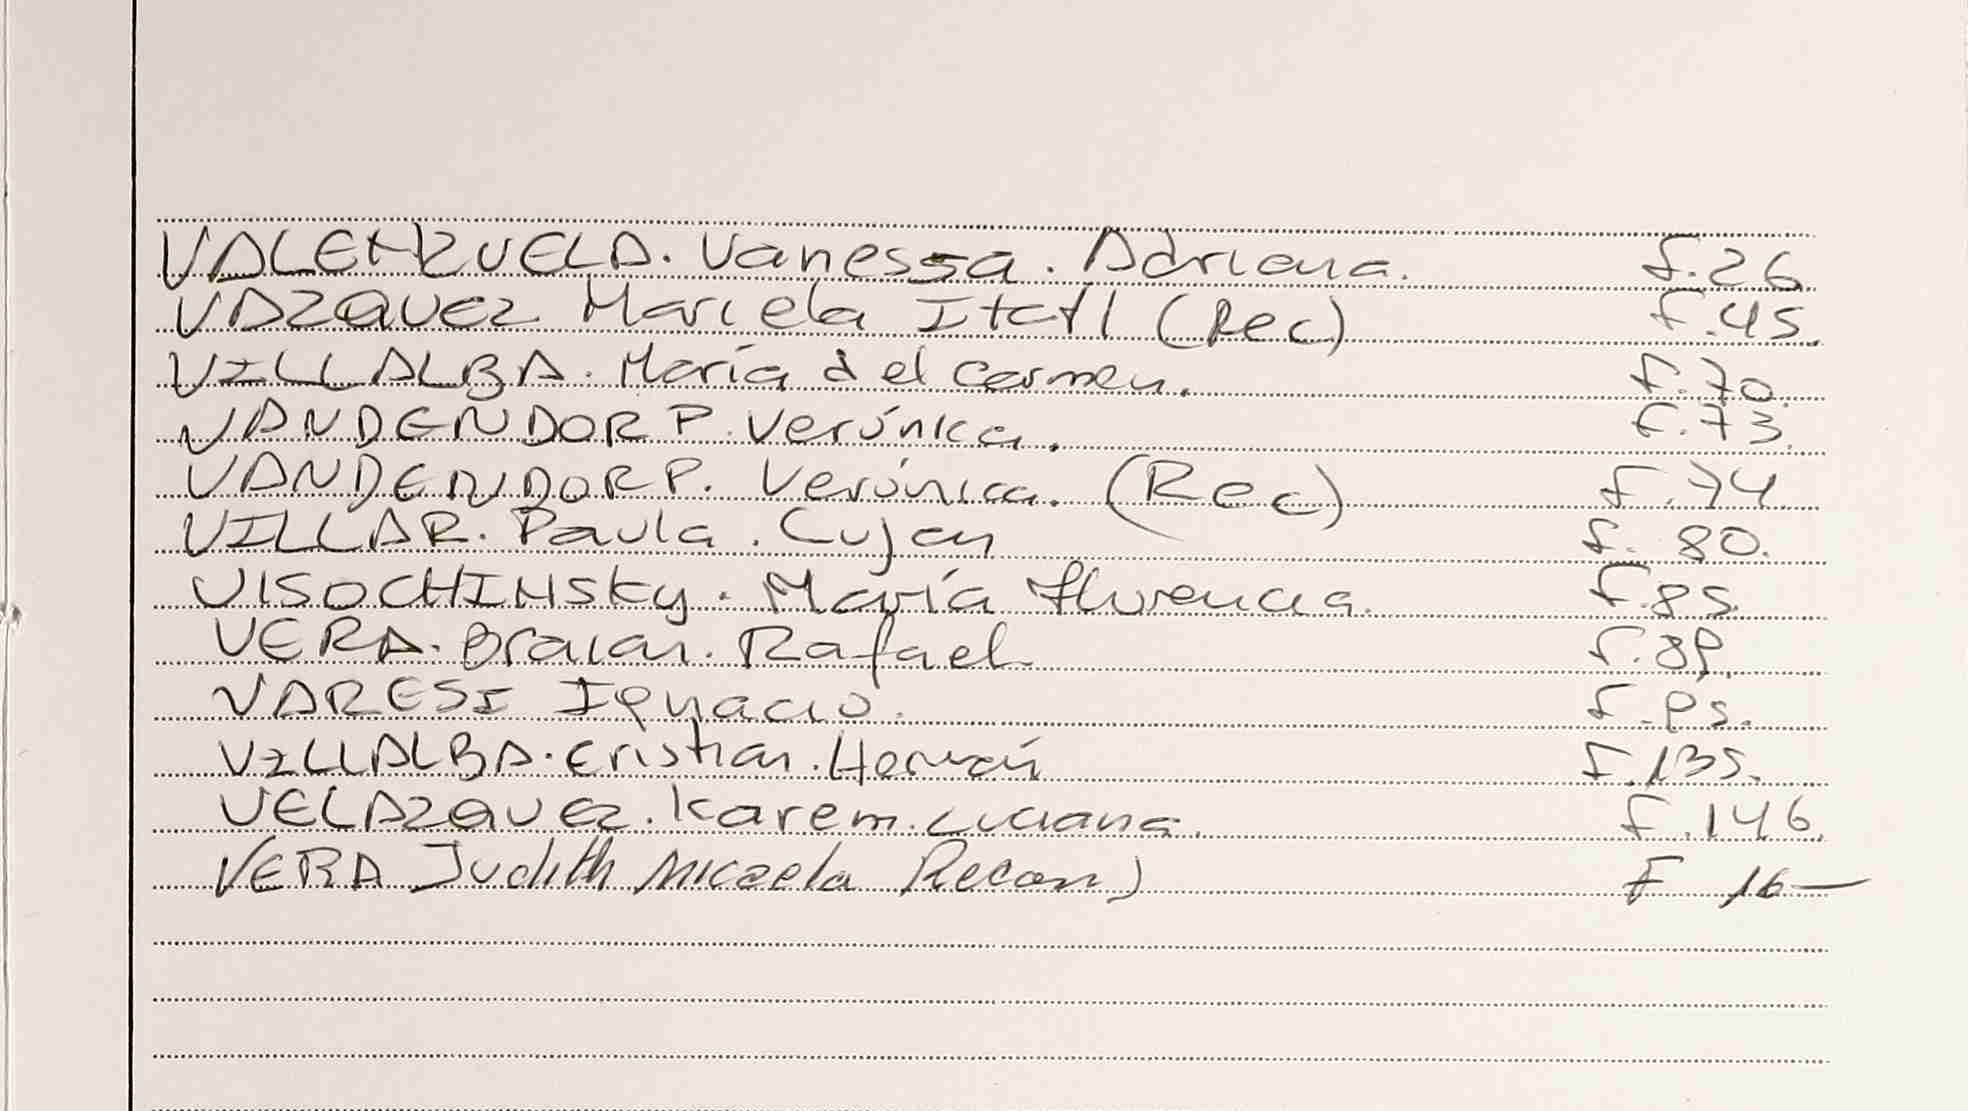 VALENZUELA. Vanessa. Adriana. f.26
VAZQUEZ Mariela Itatl (Rec) f.45.
VILLALBA. María del Carmen. f.70.
VANDENDORP. Verónica. f.73.
VANDENDORP. Verónica. (Rec) f.74
VILLAR. Paula. Lujan f. 80.
VISOCHINSky. María Florencia. f.85.
VERA. Braian. Rafael f.89.
VARESI Ignacio. f.95.
VILLALBA. Cristian. Hernán f.135.
VELAZQUEZ. Karem. Luciana. f.146.
VERA Judith Micaela Recon) F 16—